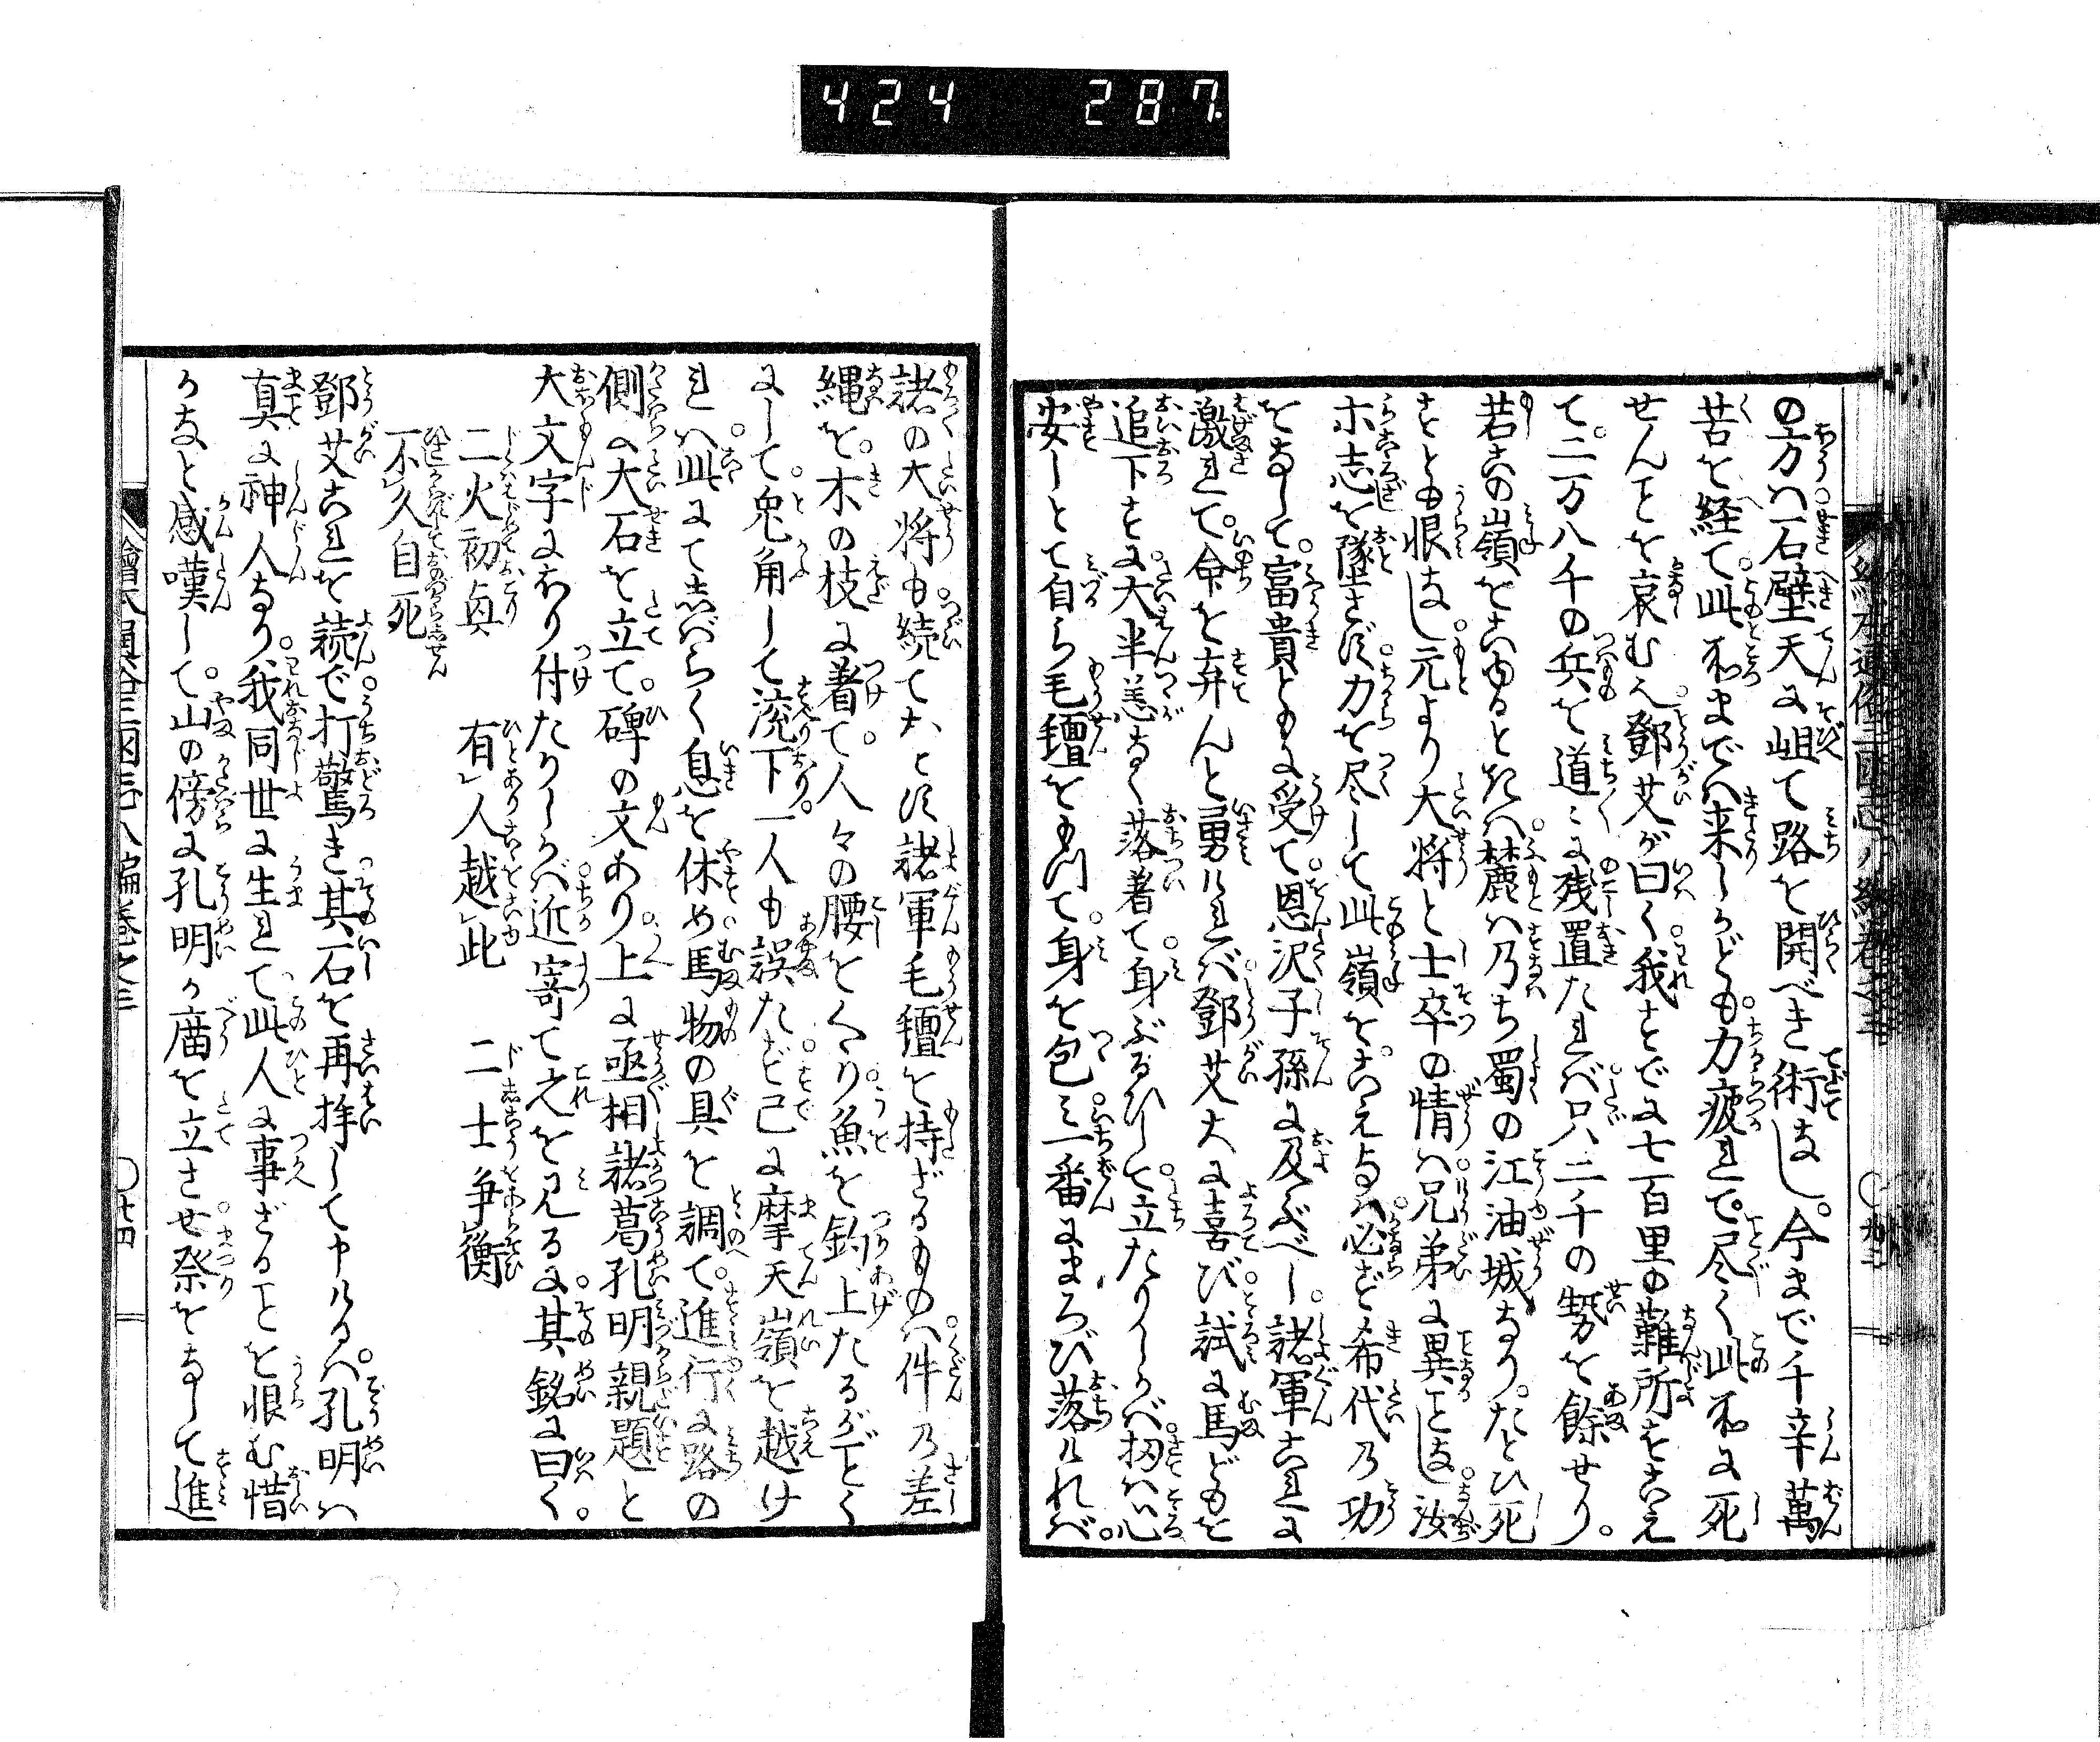 424 287
の方ハ石壁天に岨て路を開べき術なし。今まで千辛萬
苦を経て。此所までハ来しかども。力疲れて。尽く此所に死
せんことを哀む。鄧艾が曰く。我すでに七百里の難所をこえ
て。二万八千の兵を道々に残置たれバ。只二千の勢を餘せり。
若この嶺をこゆるときハ。麓ハ乃ち蜀の江油城なり。たとひ死
すとも恨なし。元より大将と士卒の情ハ。兄弟に異ことなし。汝
ホ志を墜さず。力を尽して此嶺をこえなバ。必ず希代乃功
をなして。富貴ともに受て。恩沢子孫に及ぶべし。諸軍これに
激れて。命を弃んと勇けれバ。鄧艾大に喜び。試に馬どもを
追下すに。大半恙なく落着て。身ぶるひして立たりしかバ。扨ハ心
安しとて自ら毛氊をもつて。身を包ミ。一番にまろび落けれバ。
諸の大将も続ておとす。諸軍毛氊を持ざるものハ。件乃差
縄を。木の枝に着て。人々の腰をくゝり。魚を釣上たるがごとく
にして。兎角して流下り。一人も誤たず。已に摩天嶺を越け
れハ。此にて志バらく息を休め。馬物の具を調て。進行に路の
側に大石を立て。碑の文あり。上に丞相諸葛孔明親題と
大文字にほり付たりしかバ。近寄て之を見るに。其銘に曰く。
二火初興　有人越此　二士争衡
不久自死
鄧艾これを読で。打驚き。其石を再拝して申けるハ。孔明ハ
真に神人なり。我同世に生れて。此人に事ざることを恨む。惜
かなと感嘆して。山の傍に孔明か廟を立させ。祭をなして進